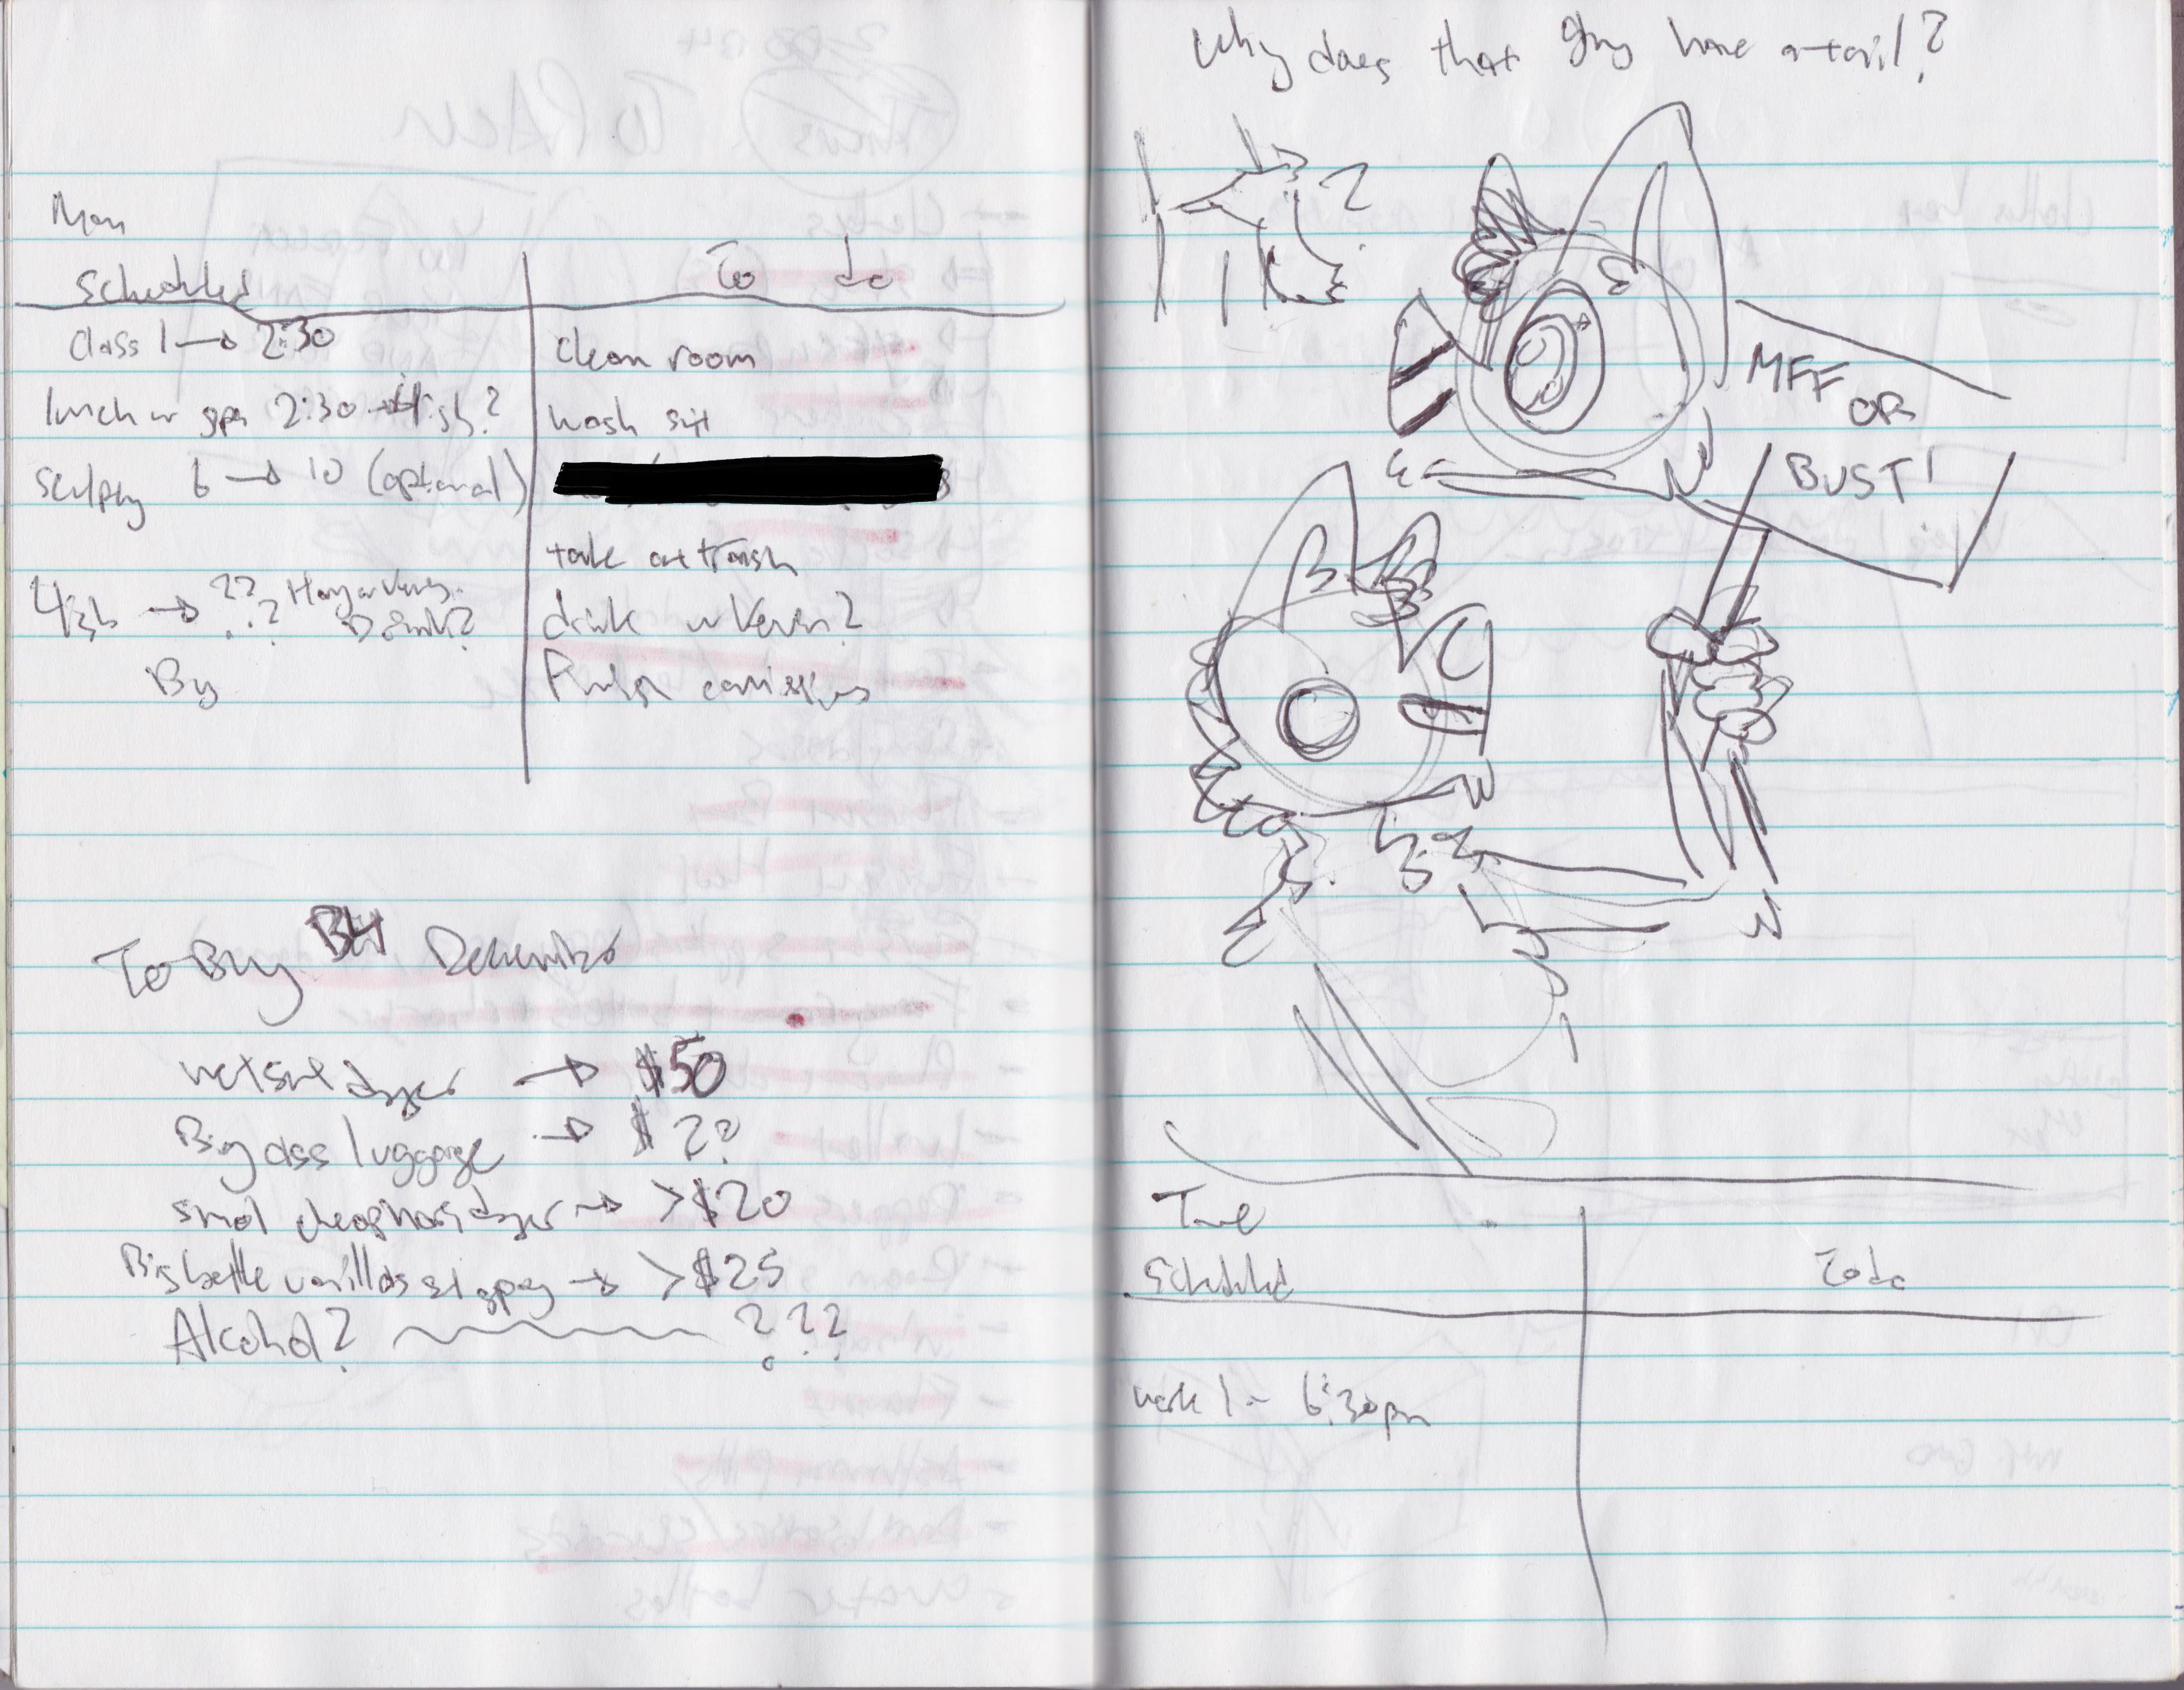 Mon
Scheduled
To do
Class 1 → 2:30
clean room
lunch w gpa 2:30 → ish?
wash suit
sculpey 6 → 10 (optional)
take out trash
4ish → ???
Drink?
drink w Keven?
By
Finish
To Buy BH December
wetsuit dryer → $50
Big ass luggage → $??
small cheap hair dryer → >$20
Big bottle vanilla → >$25
Alcohol? ???
Why does that guy have a tail?
?
MFF
OR
BUST!
Tue
Scheduled
To do
work 1 - 6:30pm